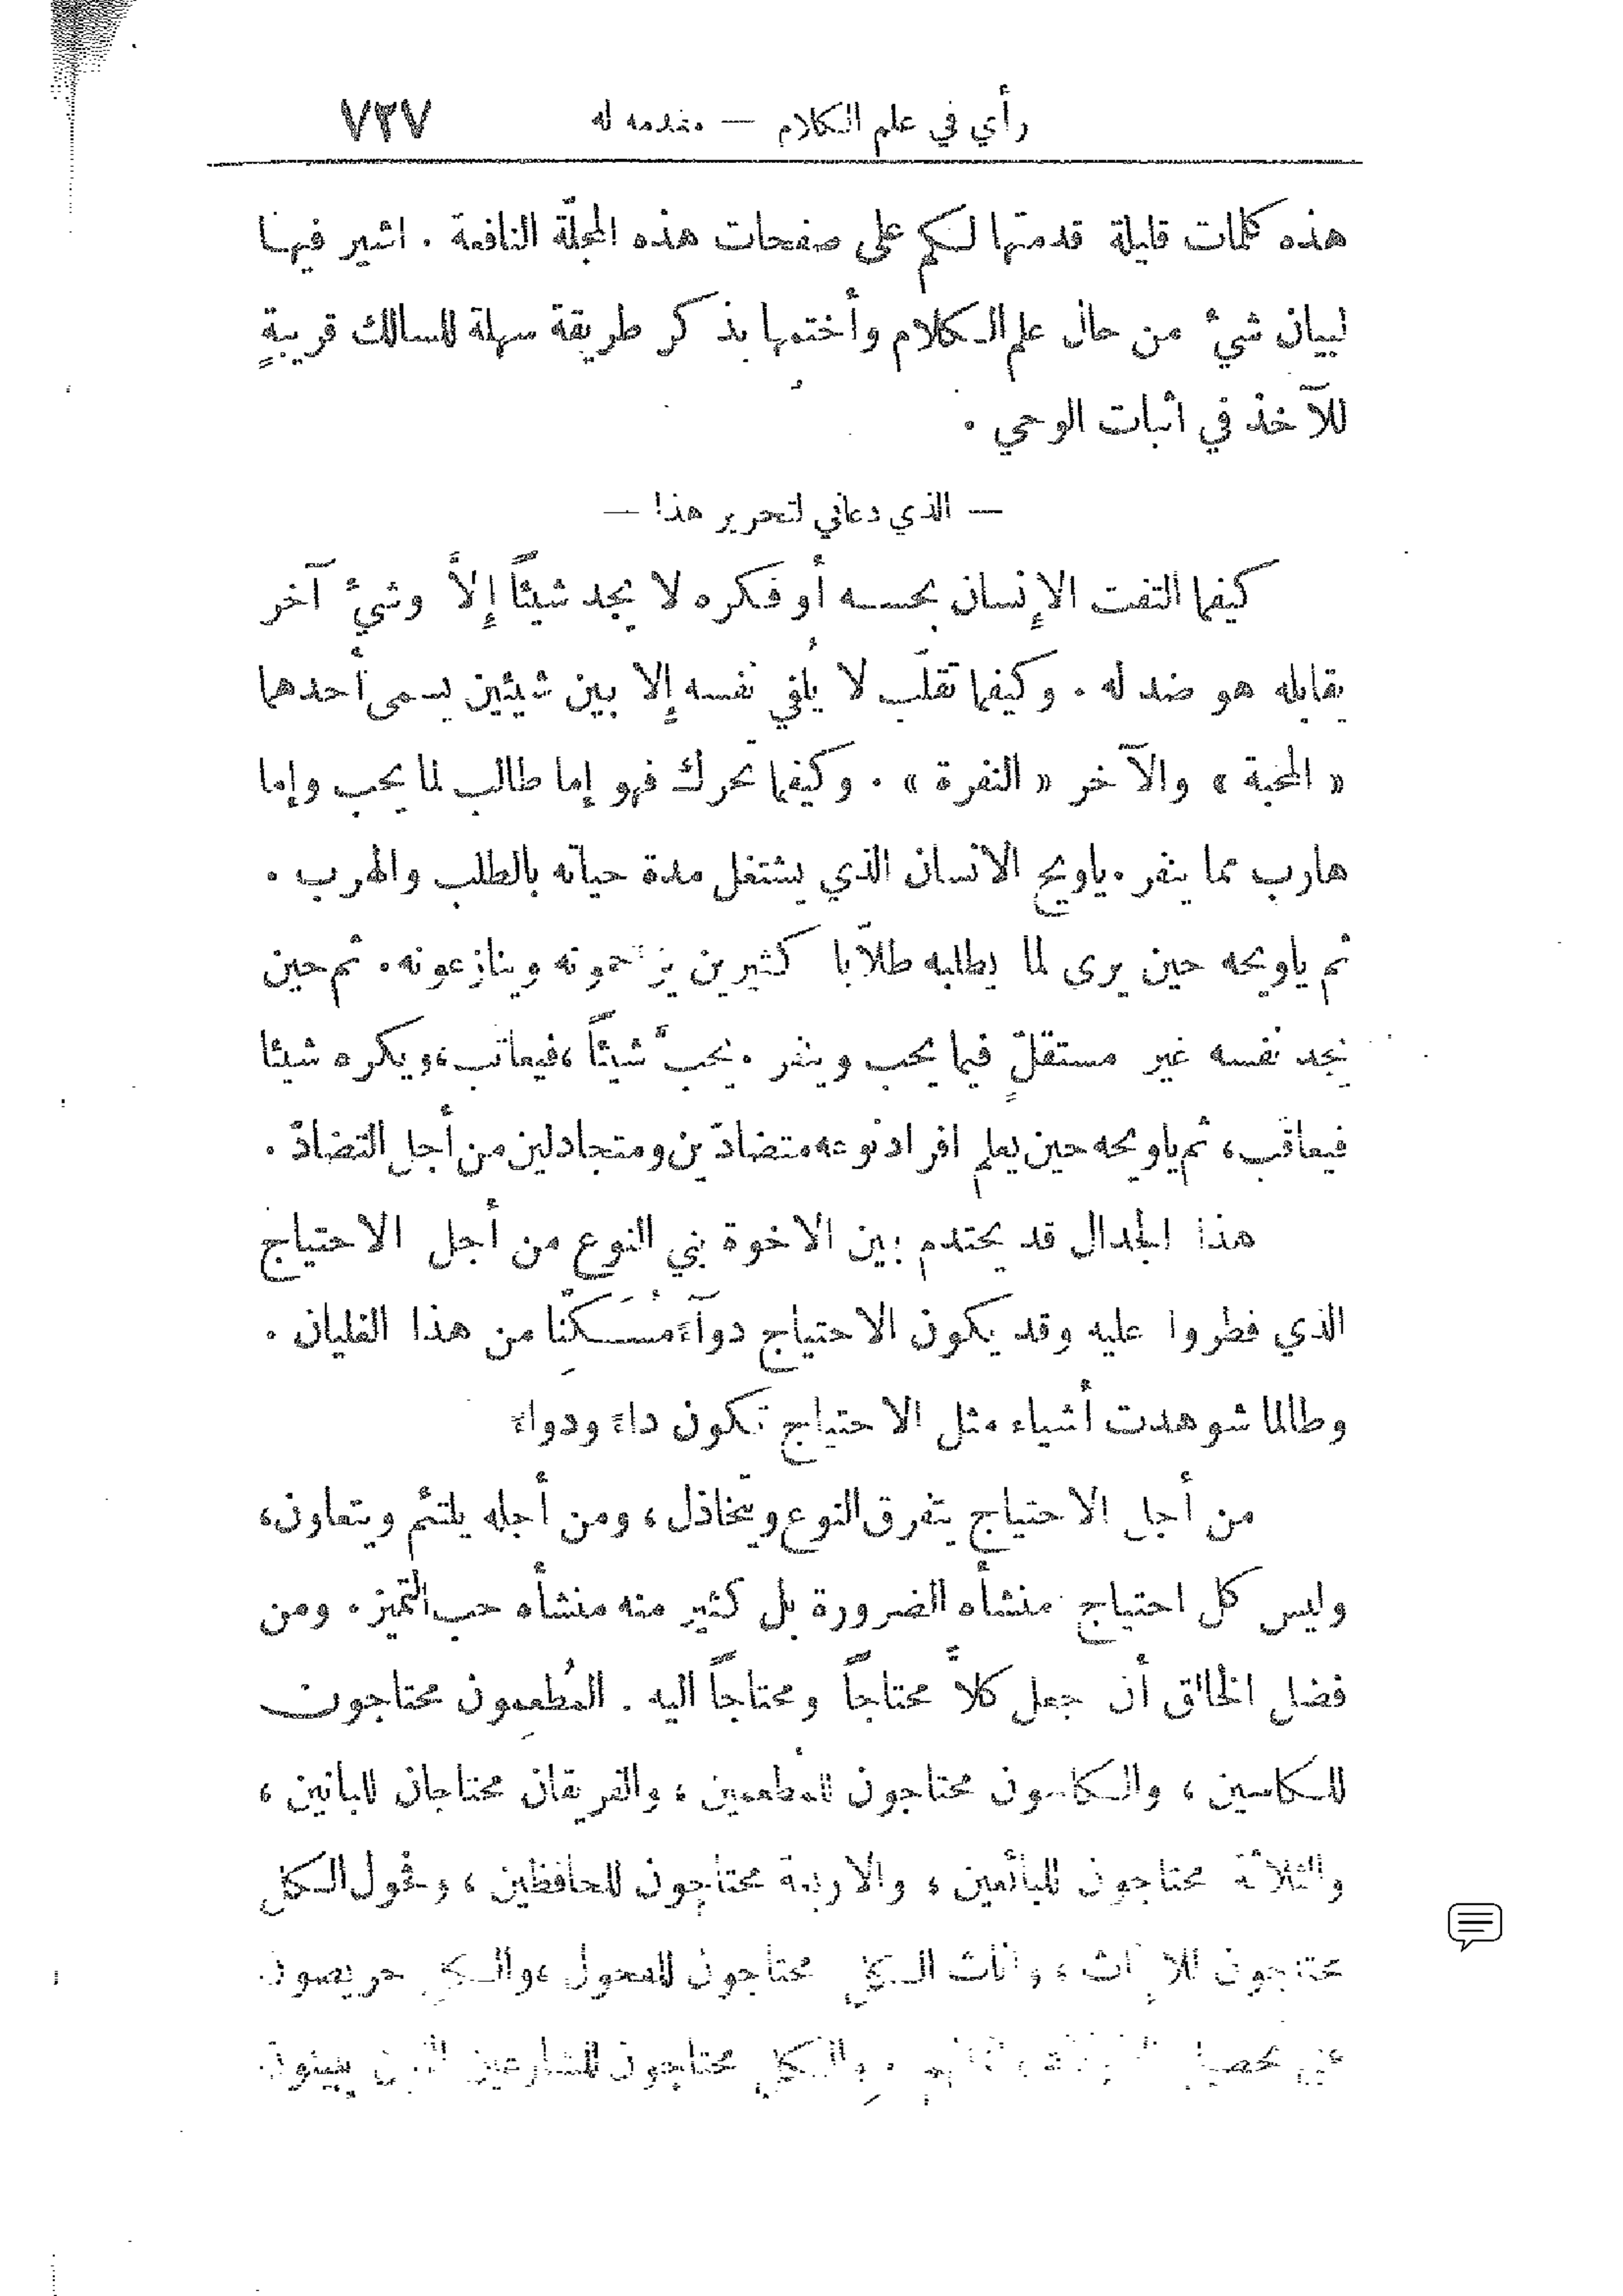 رأي في علم الكلام — مقدمه له ٧٢٧
هذه كلمات قليلة قدمتها لكم على صفحات هذه المجلّة النافعة . اشير فيها
لبيان شيءٍ من حال علم الكلام وأختمها بذكر طريقة سهلة للسالك قريبةٍ
للآخذ في اثبات الوحي .
— الذي دعاني لتحرير هذا —
كيفما التفت الإنسان بحسه أو فكره لا يجد شيئاً إلاَّ وشيءٌ آخر
يقابله هو ضد له . وكيفما تقلّب لا يُلفي نفسه إلا بين شيئين يسمى أحدهما
« المحبة » والآخر « النفرة » . وكيفما تحرك فهو إما طالب لما يحب وإما
هارب مما ينفر . ياويح الانسان الذي يشتغل مدة حياته بالطلب والهرب .
ثم ياويحه حين يرى لما يطلبه طلّابا كثيرين يزاحمونه وينازعونه . ثم حين
يجد نفسه غير مستقلٍّ فيما يحب وينفر . يحبّ شيئاً ، فيعاتب ، ويكره شيئا
فيعاقب ، ثم ياويحه حين يعلم افراد نوعه متضادّين ومتجادلين من أجل التضادّ .
هذا الجدال قد يحتدم بين الاخوة بني النوع من أجل الاحتياج
الذي فطروا عليه وقد يكون الاحتياج دوآءً مُسَكِّنا من هذا الغليان .
وطالما شوهدت أشياء مثل الاحتياج تكون داءً ودواءً
من أجل الاحتياج يتفرق النوع ويتخاذل ، ومن أجله يلتئم ويتعاون ،
وليس كل احتياج منشأه الضرورة بل كثير منه منشأه حب التميز . ومن
فضل الخالق أن جعل كلاًّ محتاجاً ومحتاجاً اليه . المُطعِمون محتاجون
للكاسين ، والكاسون محتاجون للمطعمين ، والفريقان محتاجان للبانين ،
والثلاثة محتاجون للبائعين ، والاربعة محتاجون للحافظين ، وفحول الكل
محتاجون للاناث ، واناث الكل محتاجون للفحول ، والكل حريصون
على تحصيل والكل محتاجون للشارعين الذين يبينون